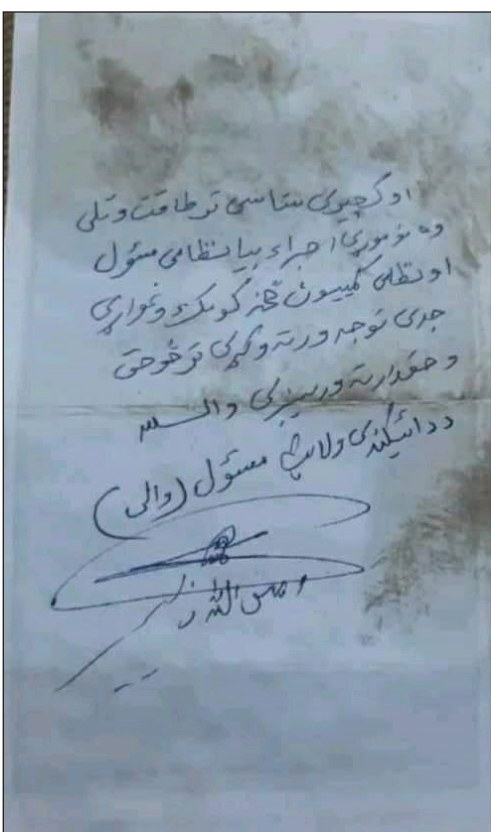 او کچیری ستاسی تر طاقت وتلی
وه نو موږی اجراء بیا نظامی مسئول
او نظامی کمیسون څخه کومک وغواړی
جدی توجه ورته وکړی ترڅو حق
و حقدار ته ورسیږی والسلام
د دائیکندی ولایت مسئول (والی)